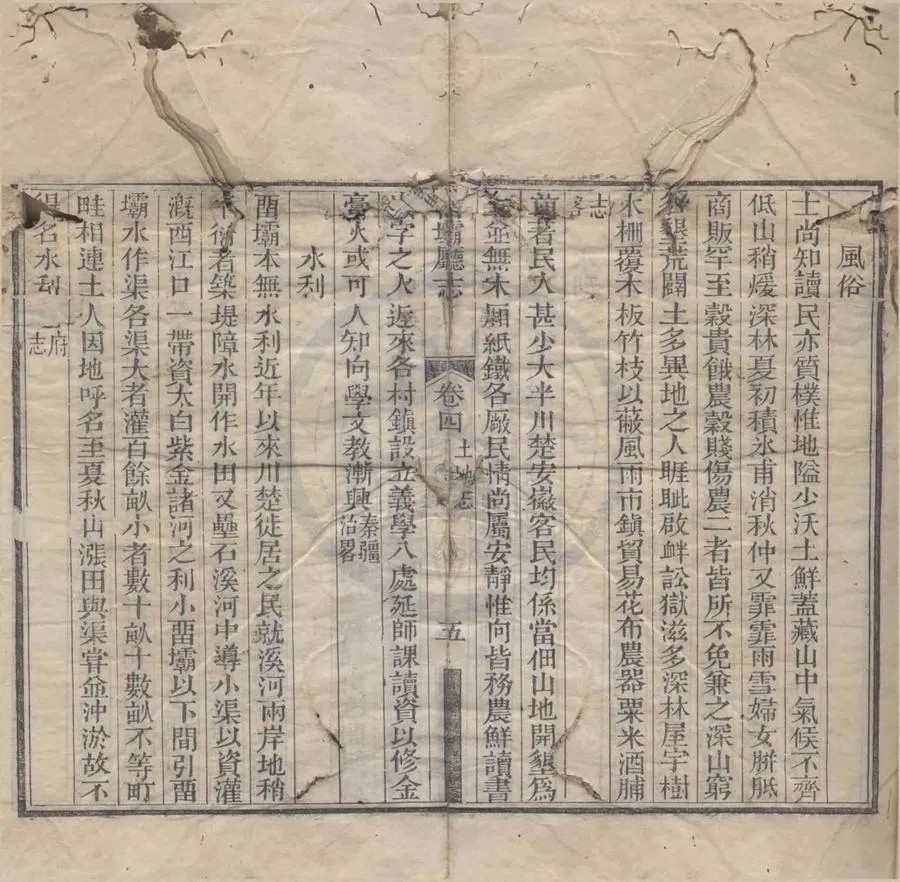 風俗
士尚知讀民亦質樸惟地隘少沃土鮮蓋藏山中氣候不齊
低山稍煖深林夏初積氷甫消秋仲又霏霏雨雪婦女胼胝
商販罕至穀貴餓農穀賤傷農二者皆所不免兼之深山窮
墾荒闢土多異地之人睚眦啟衅訟獄滋多深林屋宇樹
木柵覆木板竹枝以蔽風雨市鎮貿易花布農器粟米酒脯
志畧
前者民人甚少大半川楚安徽客民均係當佃山地開墾為
並無木廂紙鐵各厰民情尚屬安靜惟向皆務農鮮讀書
壩廳志 卷四 土地志 五
字之人邇來各村鎮設立義學八處延師課讀資以修金
膏火或可人知向學文教漸興秦疆治畧
水利
畱壩本無水利近年以來川楚徙居之民就溪河兩岸地稍
平衍者築堤障水開作水田又壘石溪河中導小渠以資灌
溉西江口一帶資太白紫金諸河之利小畱壩以下間引畱
壩水作渠各渠大者灌百餘畝小者數十畝十數畝不等町
畦相連土人因地呼名至夏秋山漲田與渠嘗並沖淤故不
得名水利府志